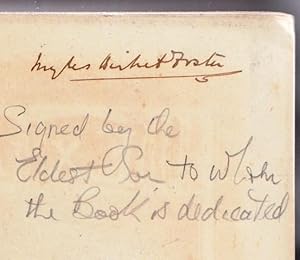 Myles Birket Foster
Signed by the
Eldest Son to whom
the Book is dedicated